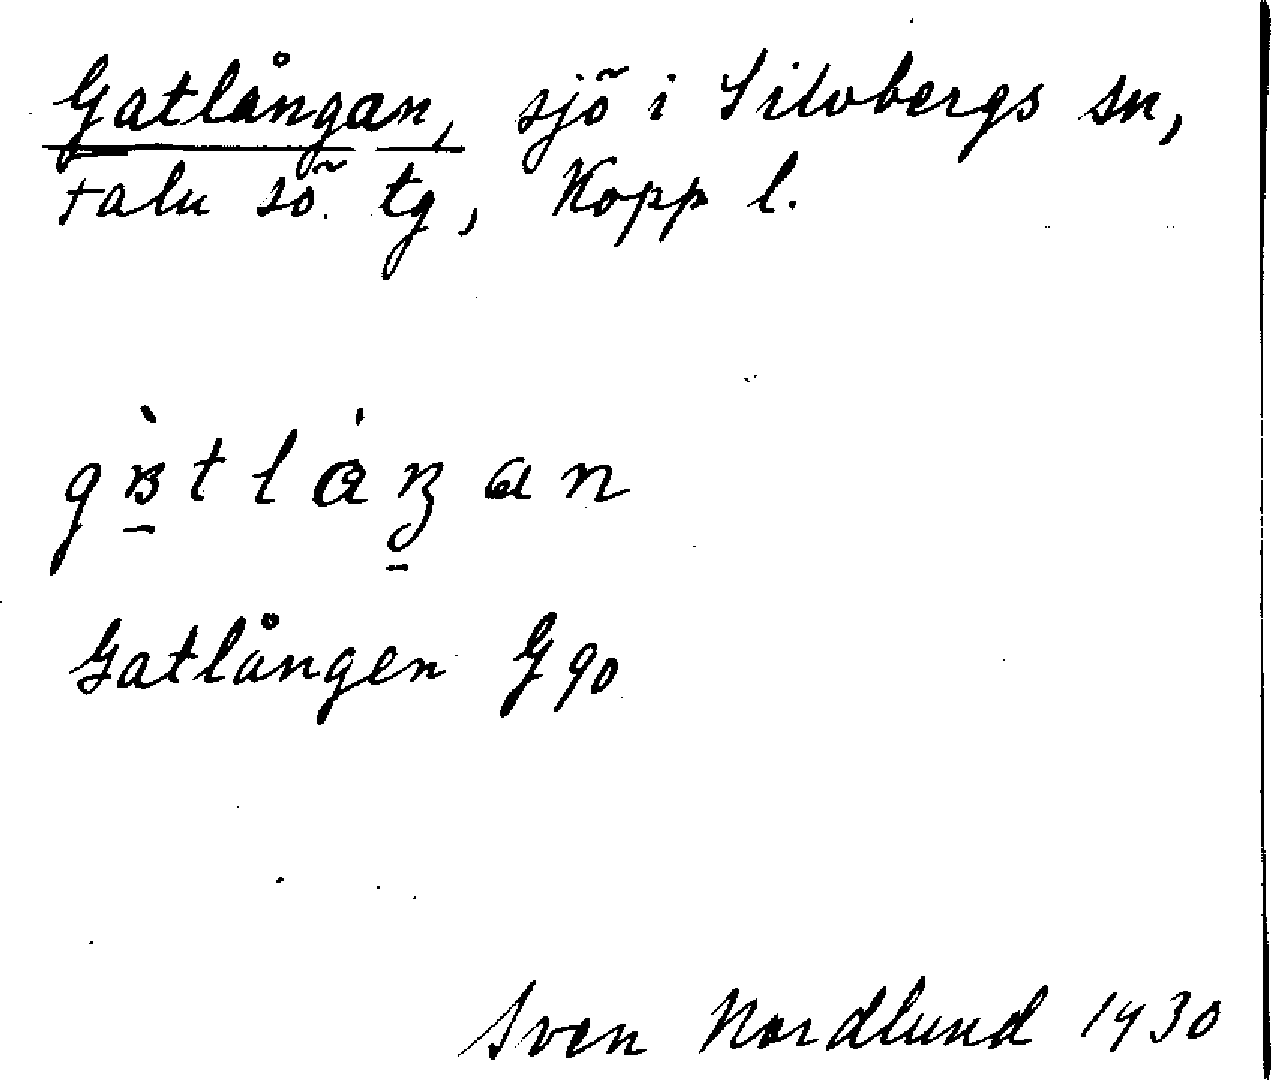 Gatlångan, sjö i Silvbergs sn,
Falu sö. tg, Kopp l.
Gatlången G 90
Sven Nordlund 1930